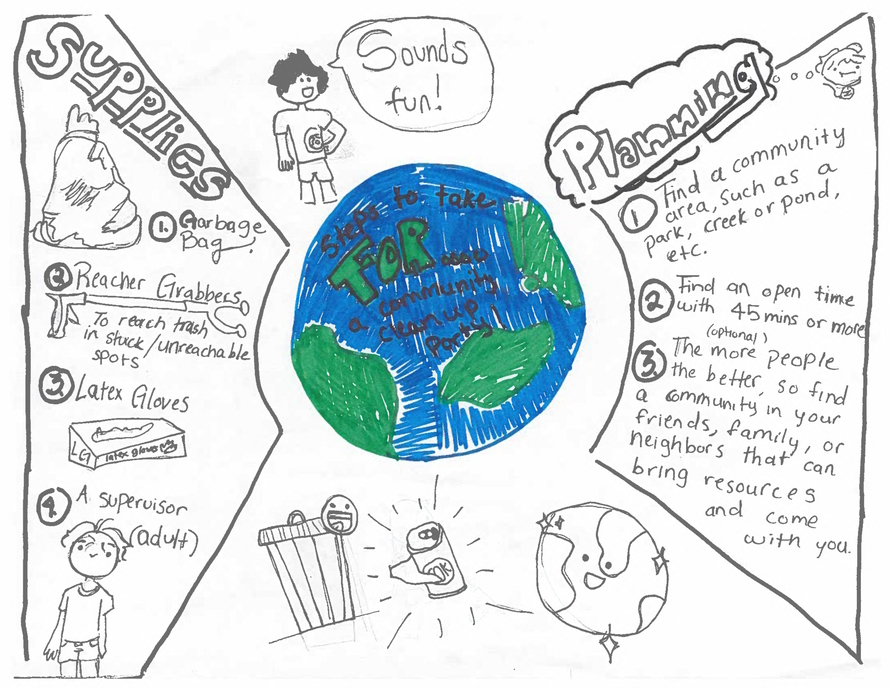 Supplies
1. Garbage
Bag
2 Reacher Grabbers
To reach trash
in stuck/unreachable
spots
3. Latex Gloves
LG
latex gloves
4. A supervisor
(adult)
Sounds
fun!
Steps to take
FOR
a community
clean up
party!
Planning
1 Find a community
area, such as a
park, creek or pond,
etc.
2 Find an open time
with 45 mins or more
(optional)
3. The more people
the better, so find
a community in your
friends, family, or
neighbors that can
bring resources
and come
with you.